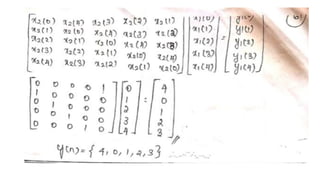 [x2(0) x2(4) x2(3) x2(2) x2(1)] [x1(0)] = [y1(0)] (6)
[x2(1) x2(0) x2(4) x2(3) x2(2)] [x1(1)] [y1(1)]
[x2(2) x2(1) x2(0) x2(4) x2(3)] [x1(2)] [y1(2)]
[x2(3) x2(2) x2(1) x2(0) x2(4)] [x1(3)] [y1(3)]
[x2(4) x2(3) x2(2) x2(1) x2(0)] [x1(4)] [y1(4)]
[0 0 0 0 1] [0] [4]
[1 0 0 0 0] [1] [0]
[0 1 0 0 0] [2] = [1]
[0 0 1 0 0] [3] [2]
[0 0 0 1 0] [4] [3]
y(n) = { 4, 0, 1, 2, 3 }